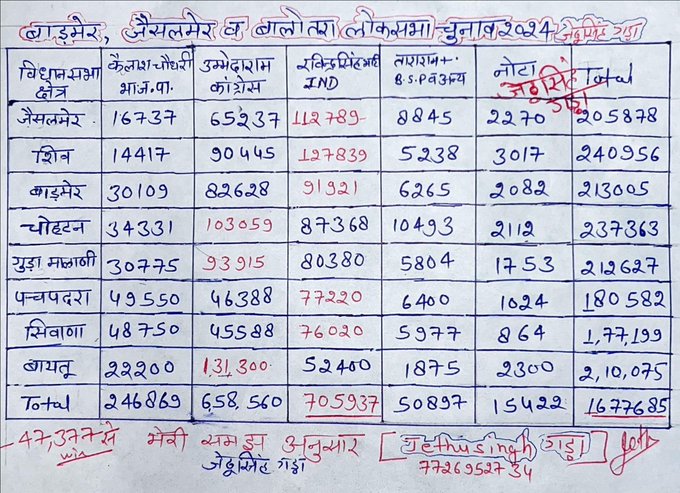 बाड़मेर, जैसलमेर व बालोतरा लोकसभा चुनाव 2024 जेठूसिंह गड़ा
विधानसभा क्षेत्र | कैलाश चौधरी भा.ज.पा. | उम्मेदाराम कांग्रेस | रविन्द्रसिंह भाटी IND | ताराराम + B.S.P व अन्य | नोटा | Total
जेठूसिंह गड़ा
जैसलमेर | 16737 | 65237 | 112789 | 8845 | 2270 | 205878
शिव | 14417 | 90445 | 127839 | 5238 | 3017 | 240956
बाड़मेर | 30109 | 82628 | 91921 | 6265 | 2082 | 213005
चोहटन | 34331 | 103059 | 87368 | 10493 | 2112 | 237363
गुड़ा मालाणी | 30775 | 93915 | 80380 | 5804 | 1753 | 212627
पचपदरा | 49550 | 46388 | 77220 | 6400 | 1024 | 180582
सिवाणा | 48750 | 45588 | 76020 | 5977 | 864 | 1,77,199
बायतू | 22200 | 1,31,300 | 52400 | 1875 | 2300 | 2,10,075
Total | 246869 | 6,58,560 | 705937 | 50897 | 15422 | 1677685
47,377 से win मेरी समझ अनुसार [Jethusingh गड़ा]
जेठूसिंह गड़ा 7726952734